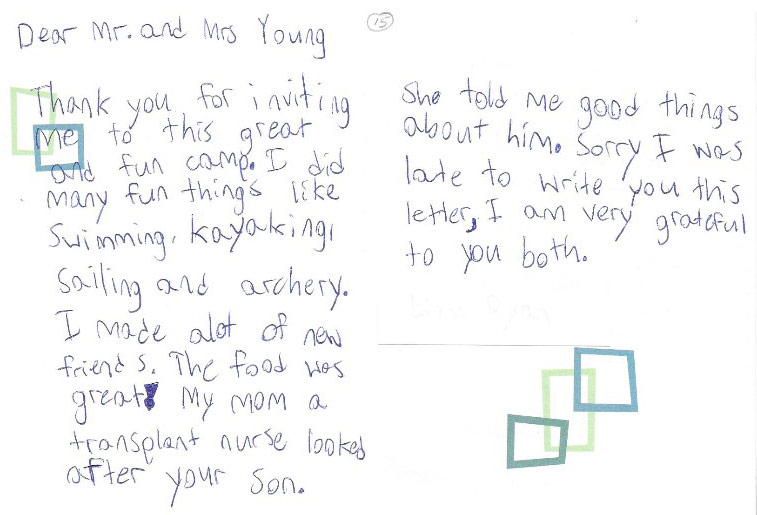 Dear Mr. and Mrs Young
Thank you for inviting
me to this great
and fun camp. I did
many fun things like
Swimming, kayaking,
Sailing and archery.
I made alot of new
friends. The food was
great! My mom a
transplant nurse looked
after your son.
15
She told me good things
about him. Sorry I was
late to write you this
letter, I am very grateful
to you both.